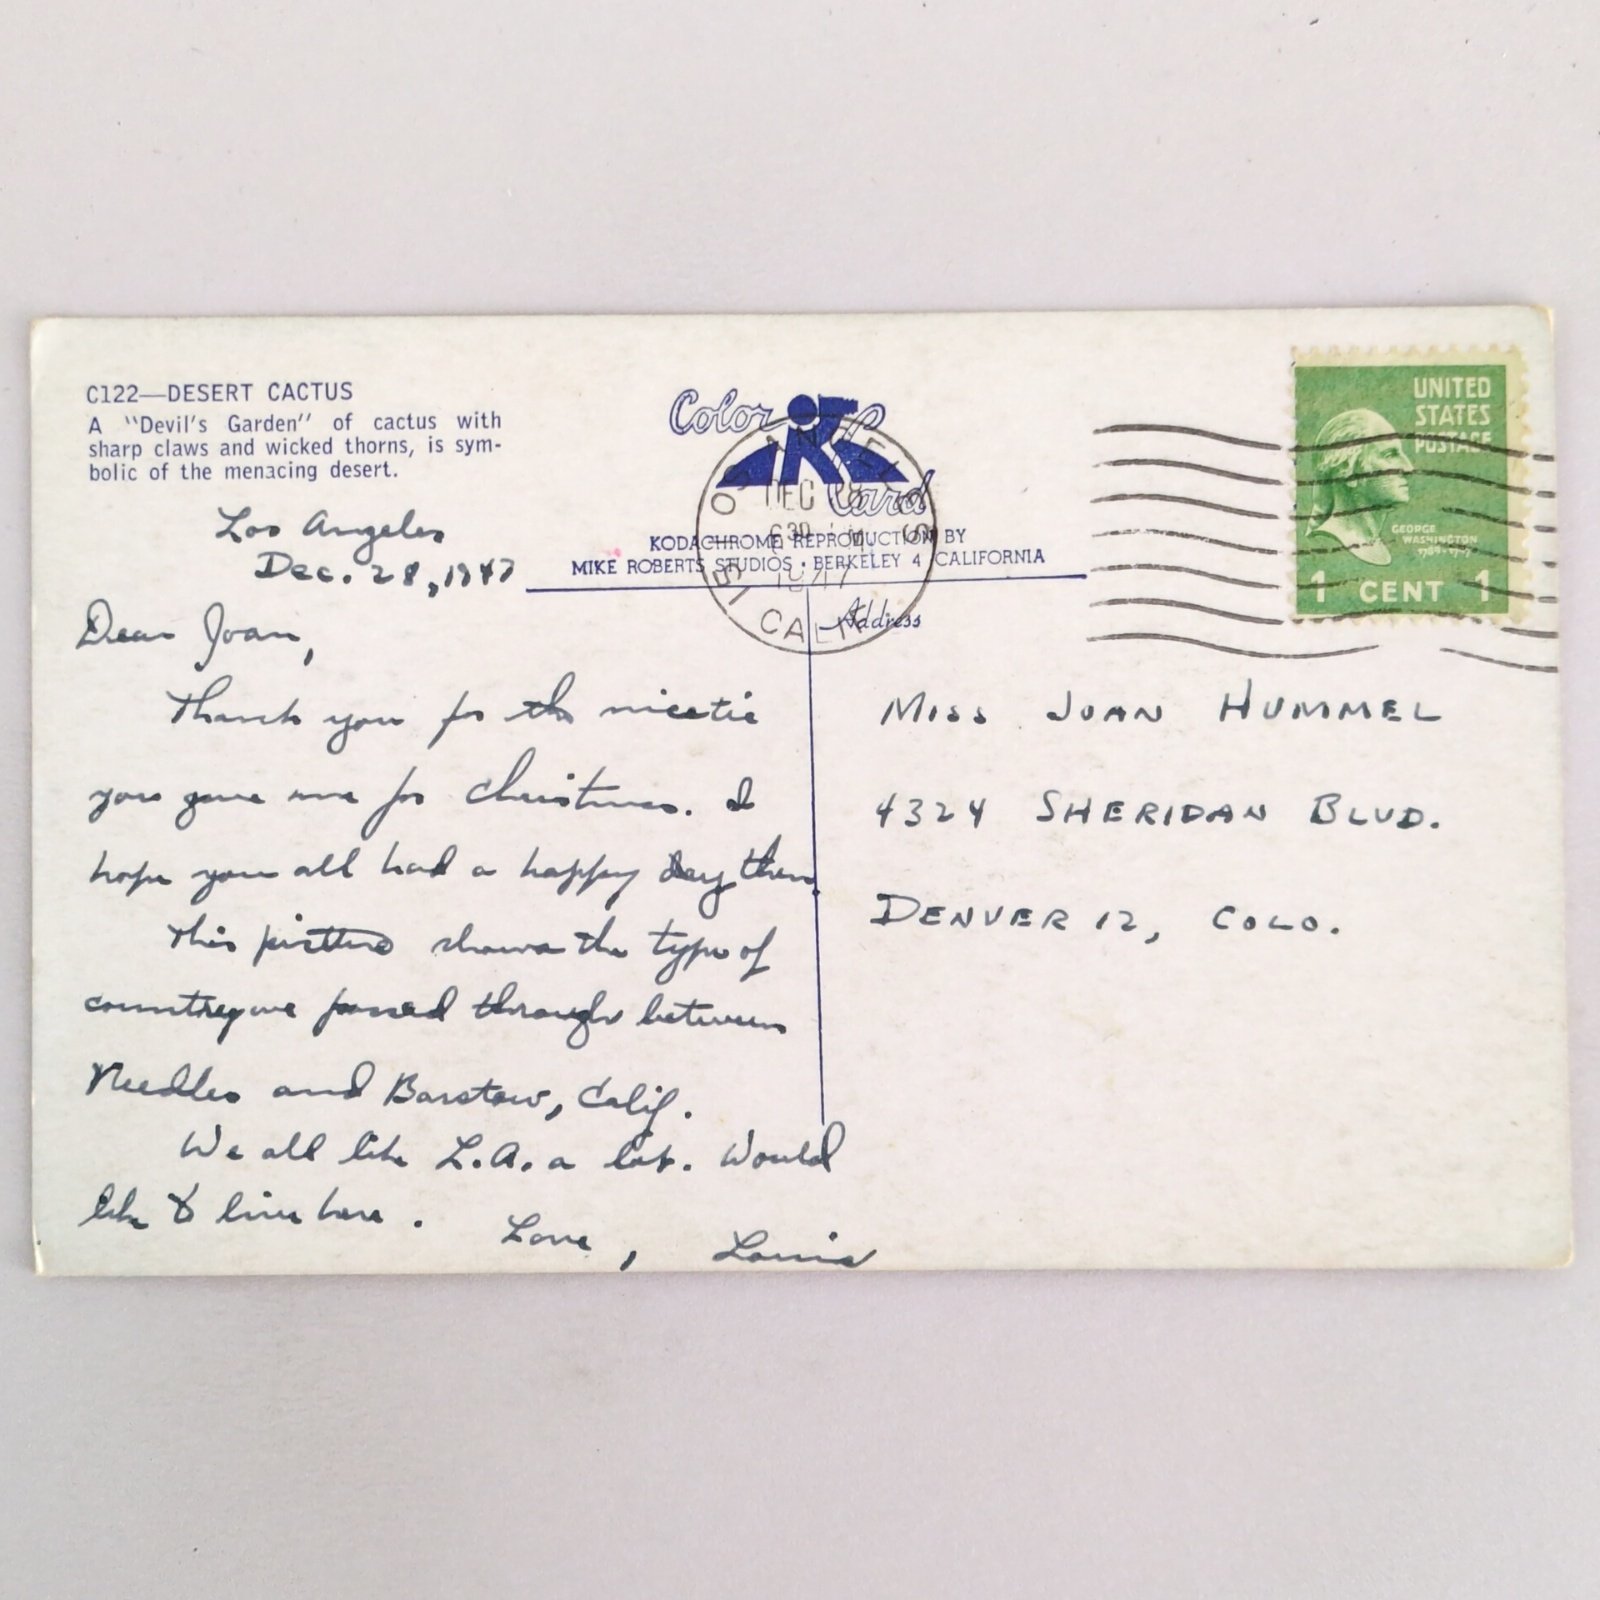 C122—DESERT CACTUS
A "Devil's Garden" of cactus with
sharp claws and wicked thorns, is sym-
bolic of the menacing desert.
Color Card
KODACHROME REPRODUCTION BY
MIKE ROBERTS STUDIOS • BERKELEY 4 CALIFORNIA
LOS ANGELES CALIF
DEC
630
1947
UNITED
STATES
POSTAGE
GEORGE
WASHINGTON
1789-1797
1 CENT 1
Los Angeles
Dec. 28, 1947
Dear Joan,
Thank you for the nice tie
you gave me for Christmas. I
hope you all had a happy day then
This picture shows the type of
country we passed through between
Needles and Barstow, Calif.
We all like L.A. a lot. Would
like to live here.
Love, Louis
Address
MISS JOAN HUMMEL
4324 SHERIDAN BLVD.
DENVER 12, COLO.